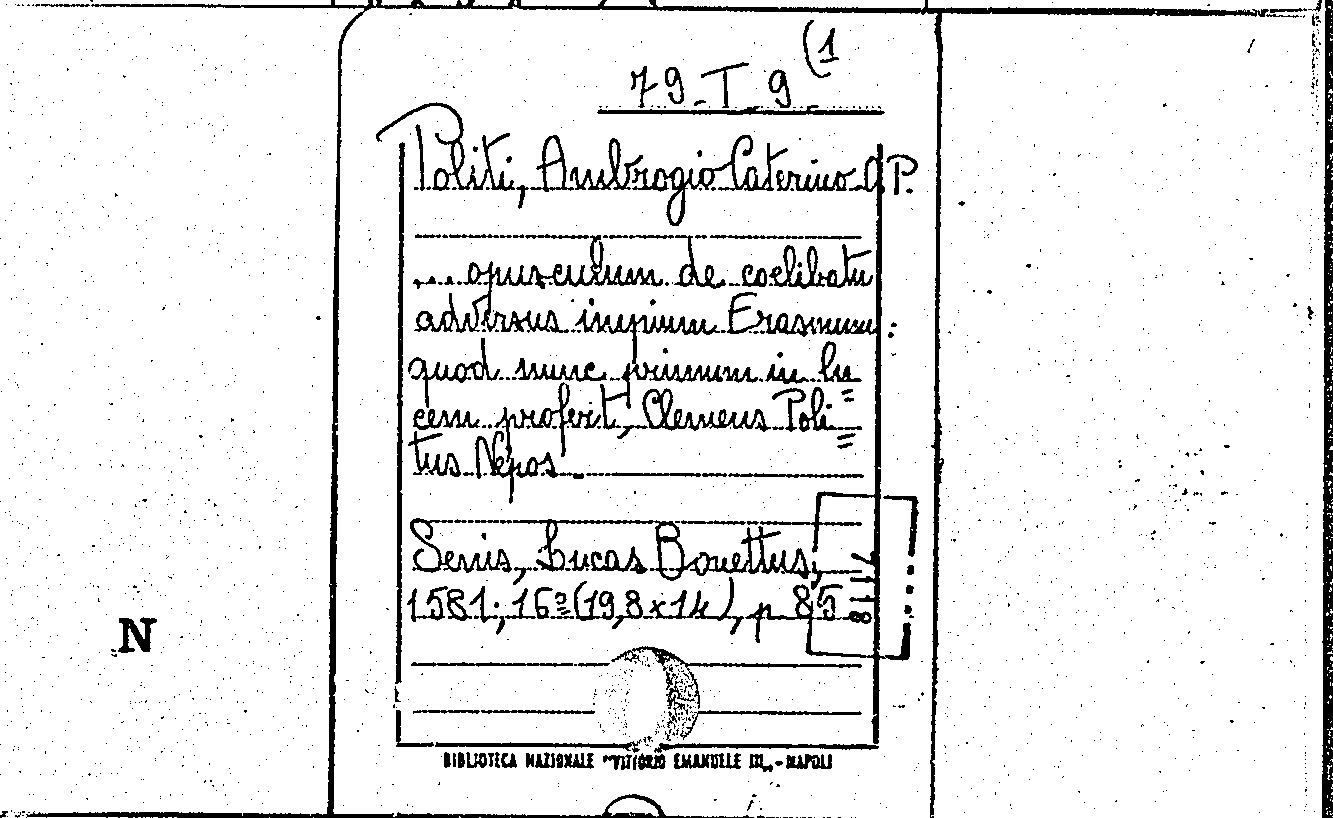 79.T.9 (1
Politi, Ambrogio Caterino O.P.
... opusculum de coelibatu
adversus impium Erasmum:
quod nunc primum in lu=
cem profert, Clemens Poli=
tus Nepos.
Senis, Lucas Bonettus,
1581; 16º (19,8x14), p 85
N
BIBLIOTECA NAZIONALE "VITTORIO EMANUELE III„ - NAPOLI